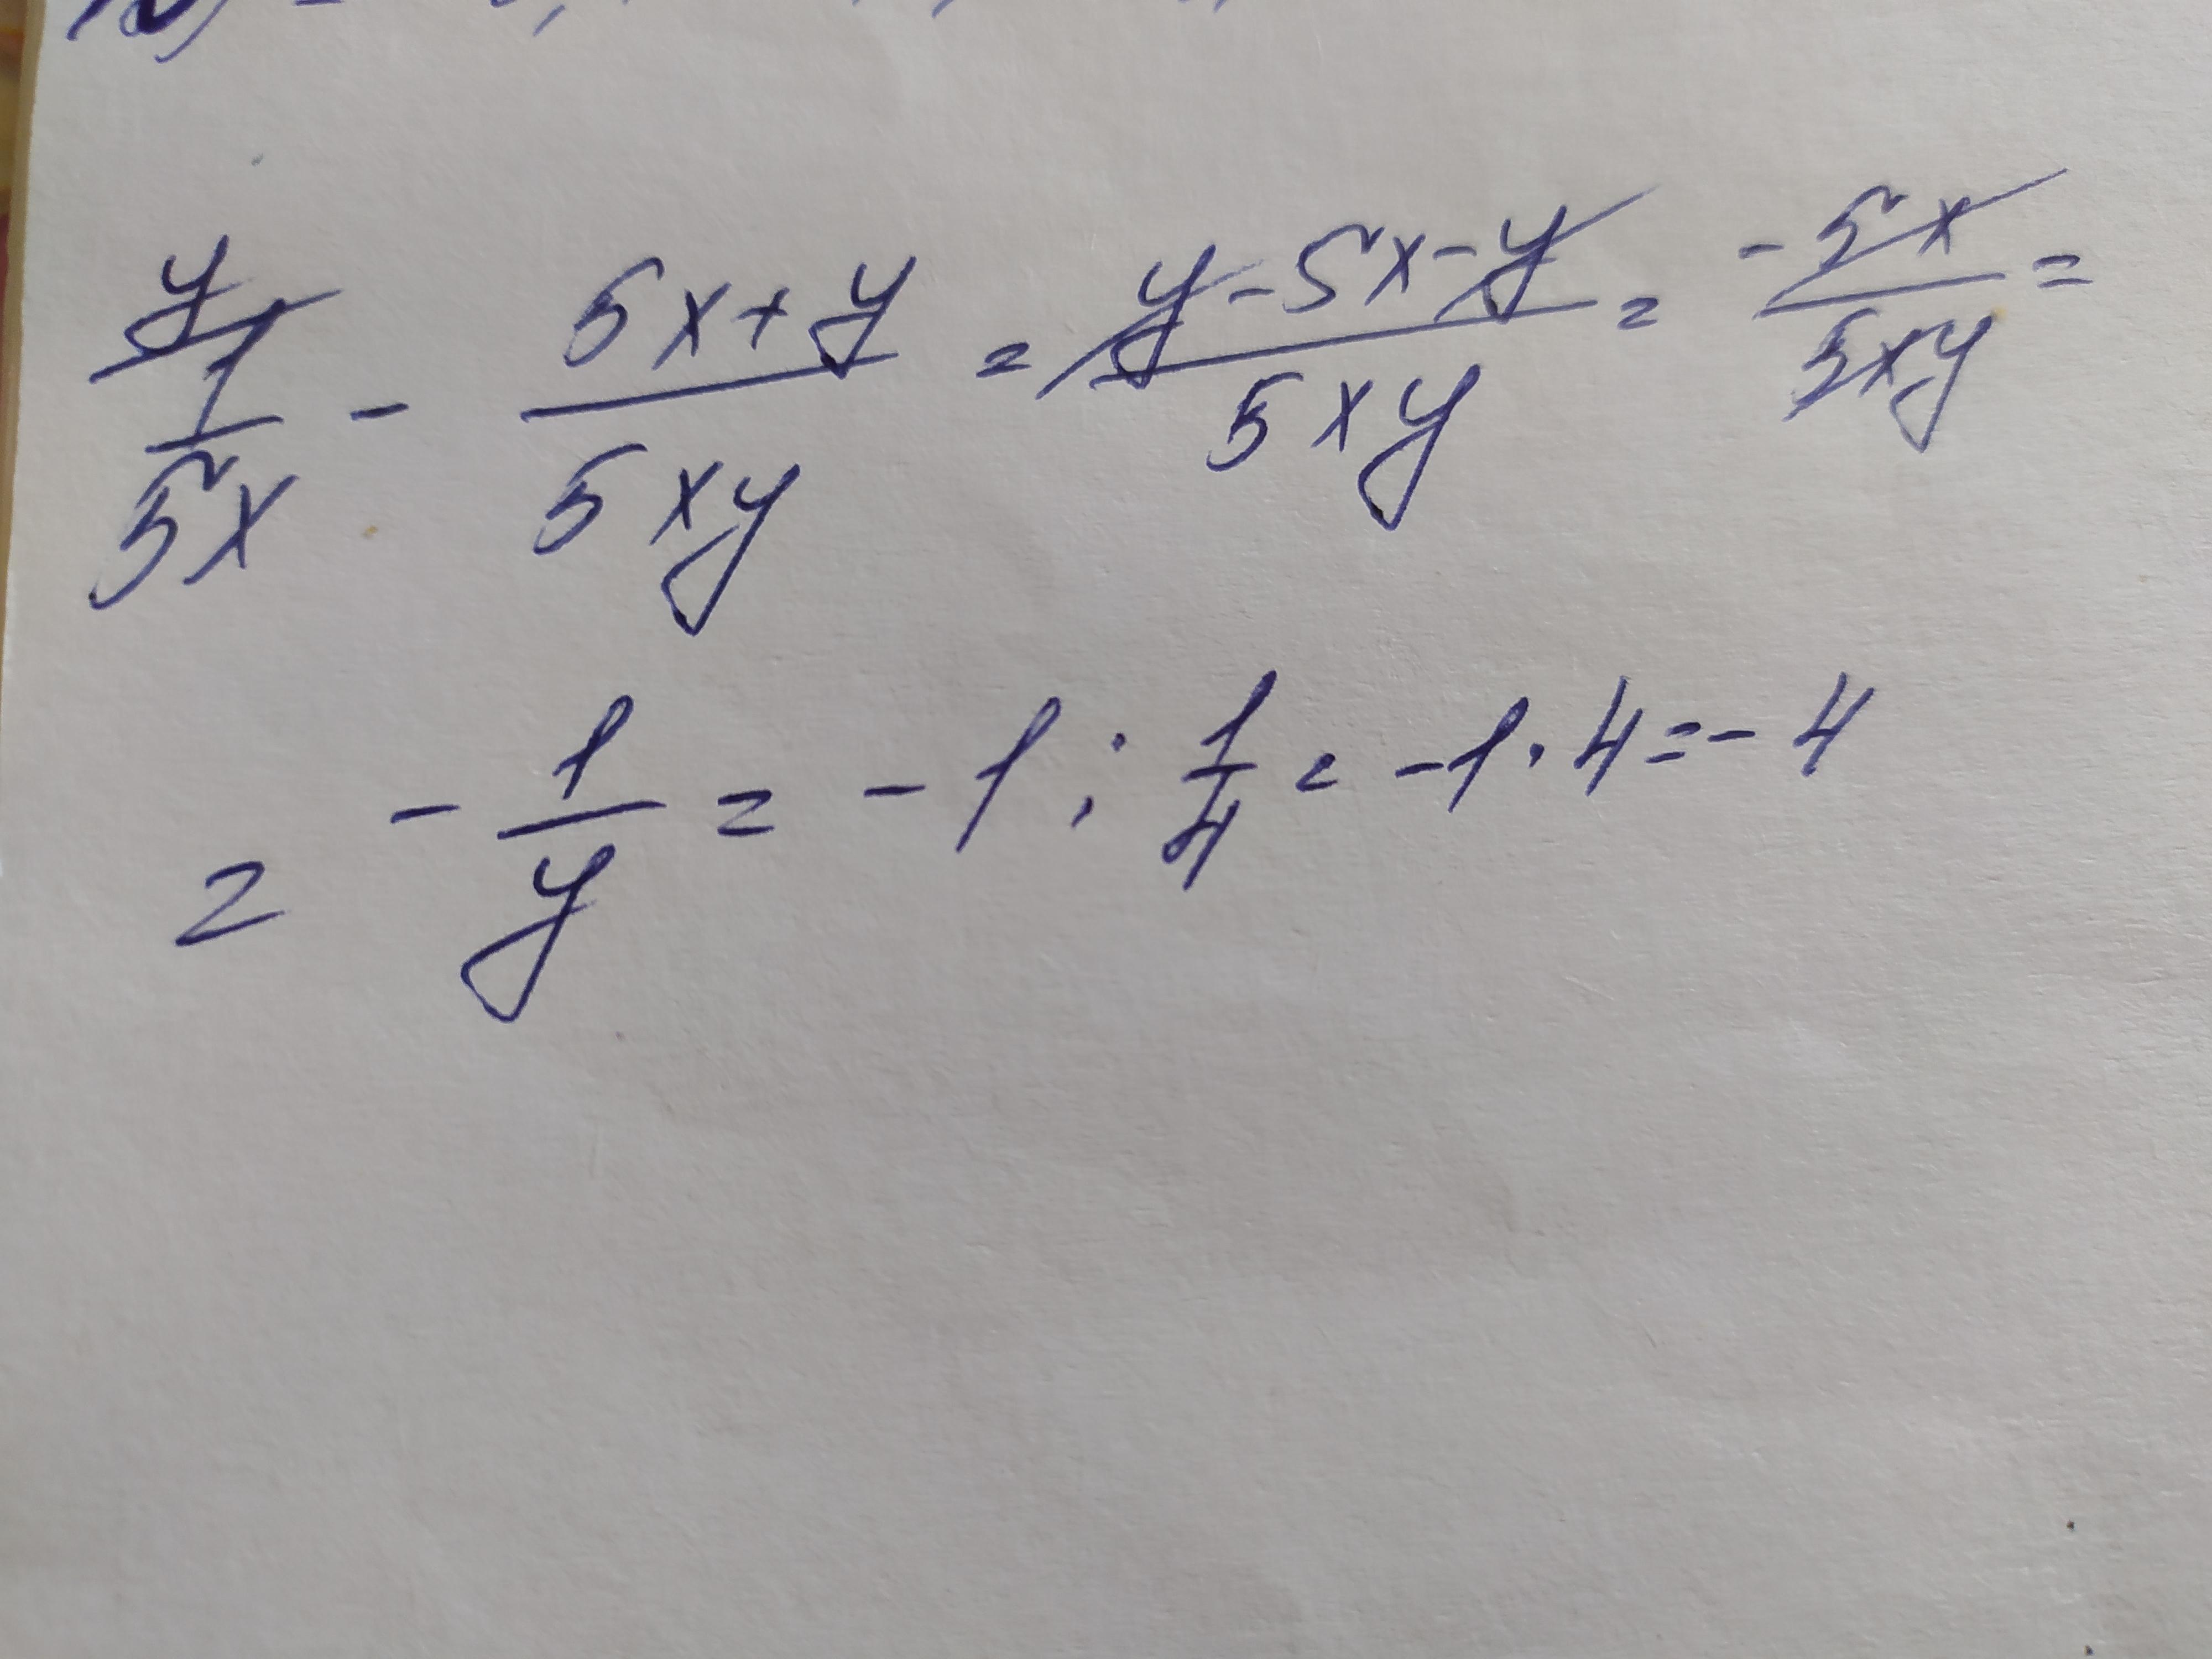 y/ 1/5x - (5x+y)/5xy = (y-5x-y)/5xy = -5x/5xy =
= -1/y = -1 : 1/4 = -1·4=-4